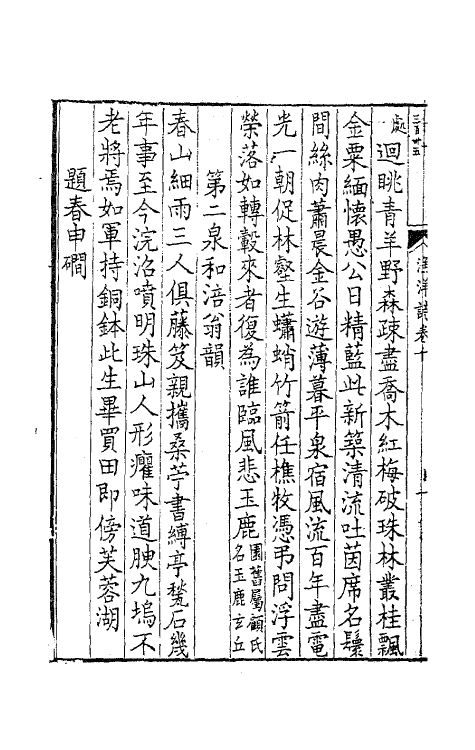 處迴眺青羊野森疎盡喬木紅梅破珠林叢桂飄
金粟緬懷愚公日精藍此新築清流吐茵席名鬟
間絲肉蕭晨金谷遊薄暮平泉宿風流百年盡電
光一朝促林壑生蠨蛸竹箭任樵牧憑弔問浮雲
榮落如轉轂來者復為誰臨風悲玉鹿園舊屬顧氏名玉鹿玄丘
第二泉和涪翁韻
春山細雨三人俱藤笈親攜桑苧書縛亭甃石幾
年事至今浣沼噴明珠山人形癯味道腴九塢不
老將焉如軍持銅鉢此生畢買田即傍芙蓉湖
題春申磵